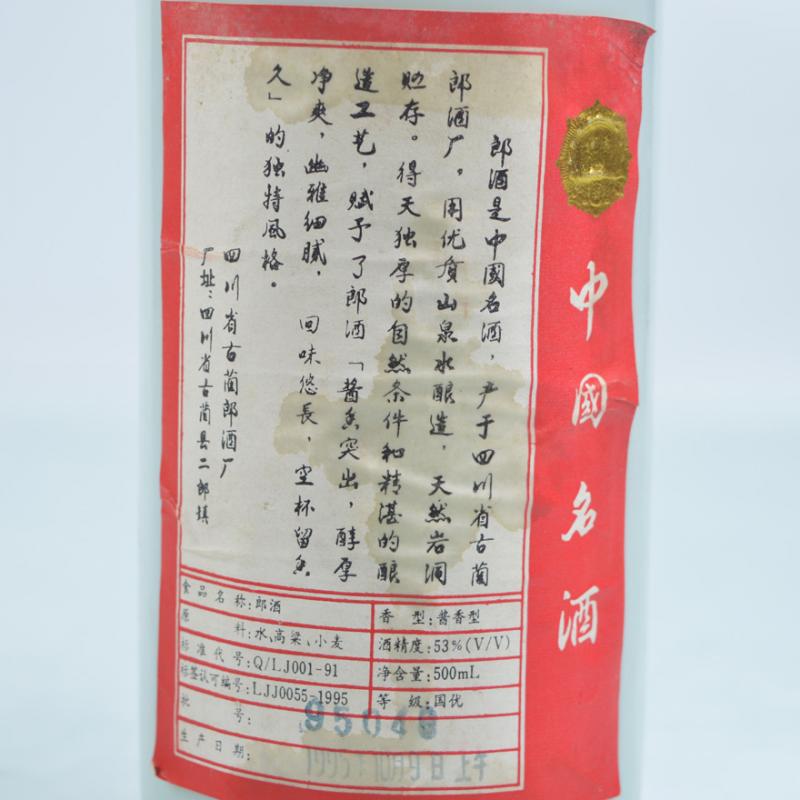 中國名酒
郎酒是中國名酒，产于四川省古蔺
郎酒厂。用优质山泉水酿造，天然岩洞
贮存。得天独厚的自然条件和精湛的酿
造工艺，赋予了郎酒「酱香突出，醇厚
净爽，幽雅细腻，回味悠長，空杯留香
久」的独特風格。
四川省古蔺郎酒厂
厂址：四川省古蔺县二郎镇
食品名称：郎酒
原料：水、高粱、小麦
标准代号：Q/LJ001-91
标签认可编号：LJJ0055-1995
批号：95048
生产日期：1995年10月9日上午
香型：酱香型
酒精度：53%(V/V)
净含量：500mL
等级：国优